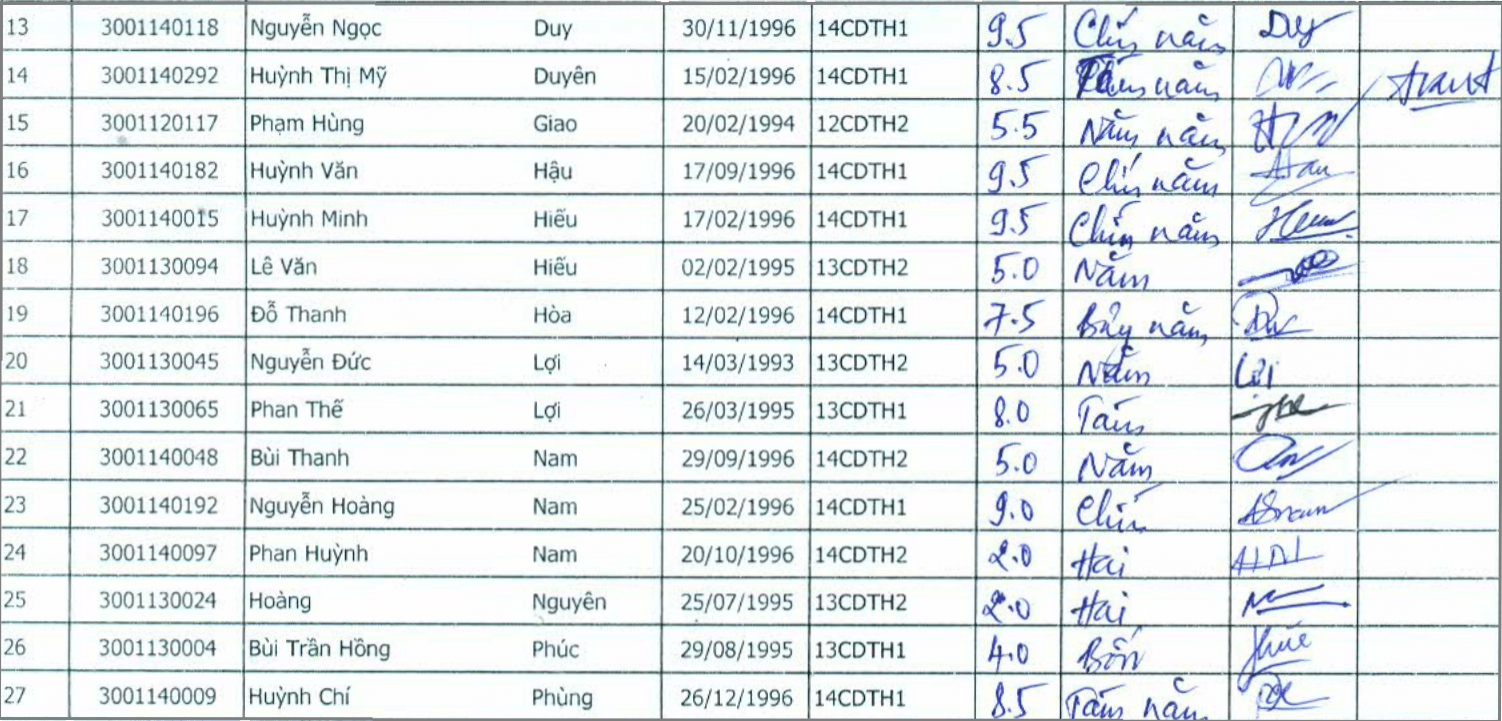 13 3001140118 Nguyễn Ngọc Duy 30/11/1996 14CDTH1 9.5 Chín năm Duy
14 3001140292 Huỳnh Thị Mỹ Duyên 15/02/1996 14CDTH1 8.5 Tám năm
15 3001120117 Phạm Hùng Giao 20/02/1994 12CDTH2 5.5 Năm năm
16 3001140182 Huỳnh Văn Hậu 17/09/1996 14CDTH1 9.5 Chín năm Hau
17 3001140015 Huỳnh Minh Hiếu 17/02/1996 14CDTH1 9.5 Chín năm
18 3001130094 Lê Văn Hiếu 02/02/1995 13CDTH2 5.0 Năm
19 3001140196 Đỗ Thanh Hòa 12/02/1996 14CDTH1 7.5 Bảy năm
20 3001130045 Nguyễn Đức Lợi 14/03/1993 13CDTH2 5.0 Năm Lợi
21 3001130065 Phan Thế Lợi 26/03/1995 13CDTH1 8.0 Tám
22 3001140048 Bùi Thanh Nam 29/09/1996 14CDTH2 5.0 Năm
23 3001140192 Nguyễn Hoàng Nam 25/02/1996 14CDTH1 9.0 Chín
24 3001140097 Phan Huỳnh Nam 20/10/1996 14CDTH2 2.0 Hai
25 3001130024 Hoàng Nguyên 25/07/1995 13CDTH2 2.0 Hai
26 3001130004 Bùi Trần Hồng Phúc 29/08/1995 13CDTH1 4.0 Bốn Phúc
27 3001140009 Huỳnh Chí Phùng 26/12/1996 14CDTH1 8.5 Tám năm